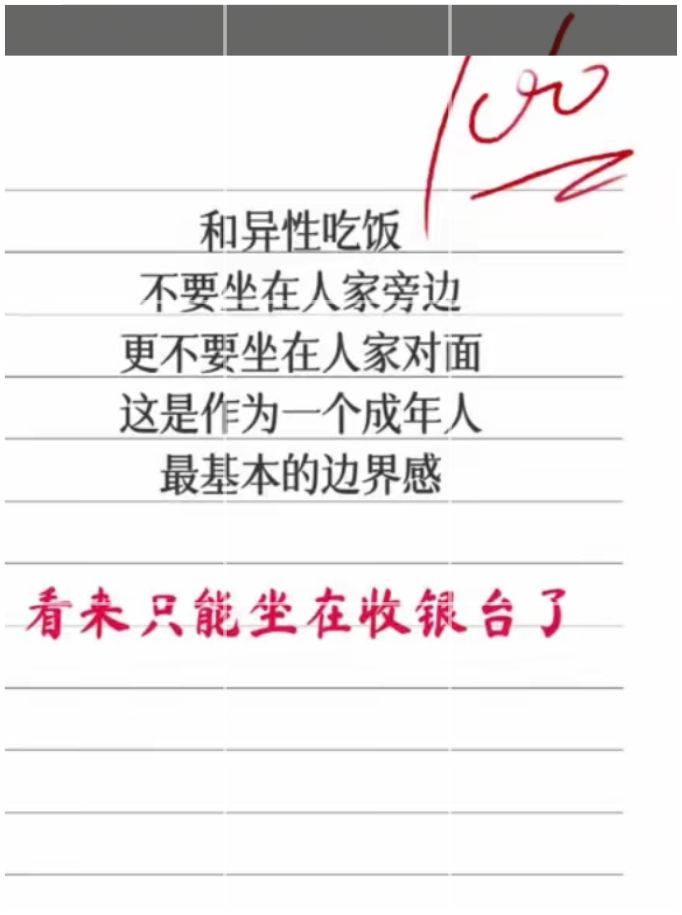 100
和异性吃饭
不要坐在人家旁边
更不要坐在人家对面
这是作为一个成年人
最基本的边界感
看来只能坐在收银台了